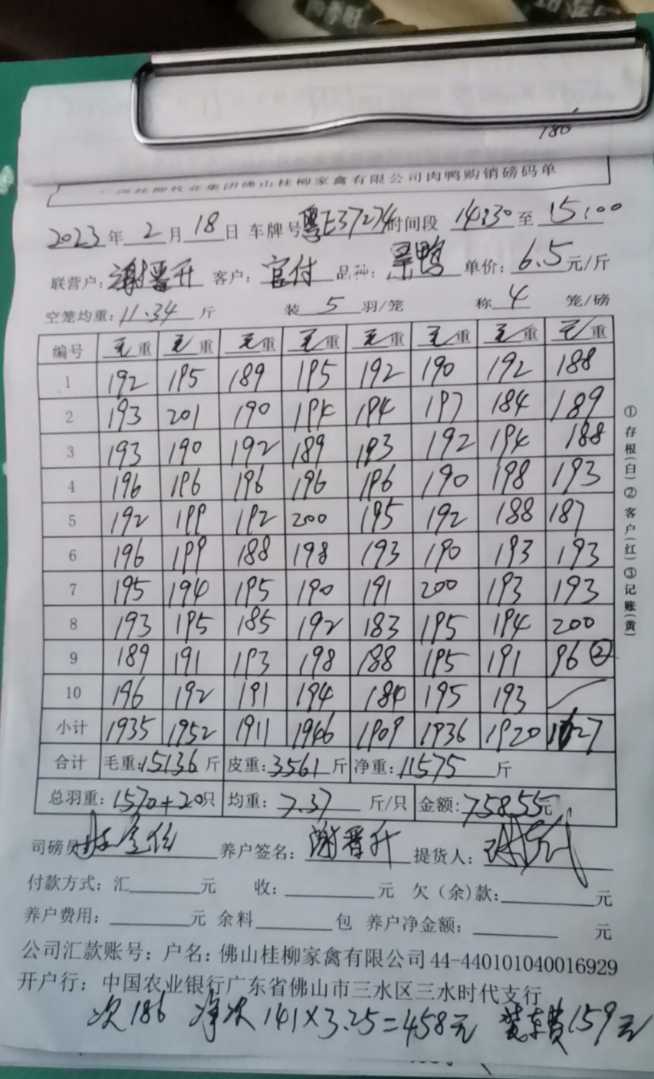 180
佛山桂柳家禽有限公司肉鸭购销磅码单
2023年2月18日 车牌号粤E37274时间段 14:30至15:00
联营户:谢晋升 客户:官付 品种:旱鸭 单价:6.5元/斤
空笼均重:11.34斤 装5羽/笼 称4笼/磅
编号 毛重 毛重 毛重 毛重 毛重 毛重 毛重 毛重
1 192 195 189 195 192 190 192 188
2 193 201 190 194 194 197 184 189
3 193 190 192 189 193 192 194 188
4 196 196 196 196 196 190 198 193
5 192 199 192 200 195 192 188 187
6 196 199 188 198 193 190 193 193
7 195 194 195 190 191 200 193 193
8 193 195 185 192 183 195 194 200
9 189 191 193 198 188 195 191 96②
10 196 192 191 194 184 195 193
小计 1935 1952 1911 1946 1909 1936 1920 1627
合计 毛重:15136斤 皮重:3561斤 净重:11575斤
总羽重:1570+20只 均重:7.37斤/只 金额:75855元
司磅员: 养户签名:谢晋升 提货人:
付款方式:汇 元 收: 元 欠(余)款: 元
养户费用: 元 余料 包 养户净金额: 元
公司汇款账号:户名:佛山桂柳家禽有限公司 44-440101040016929
开户行:中国农业银行广东省佛山市三水区三水时代支行
次186 净次141×3.25=458元 装车费159元
①存根(白)②客户(红)③记账(黄)